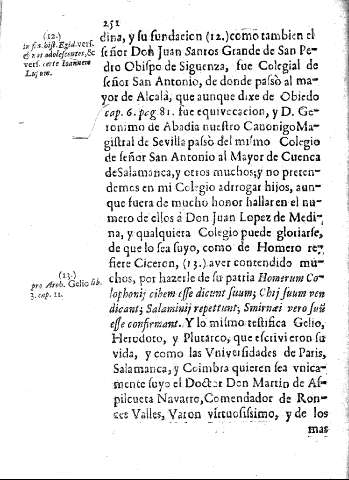 251
(12.)
in f. s. hist. Egid. vers.
& vers
vers. certe Ioannem
Lujum.
dina, y su fundacion (12.) como tambien el
señor Don Juan Santos Grande de San Pe-
dro Obispo de Siguenza, fue Colegial de
señor San Antonio, de donde passò al ma-
yor de Alcalà, que aunque dixe de Obiedo
cap. 6. pag 81. fue equivecacion, y D. Ge-
ronimo de Abadia nuestro Canonigo Ma-
gistral de Sevilla passò del mismo Colegio
de señor San Antonio al Mayor de Cuenca
de Salamanca, y otros muchos; y no preten-
demos en mi Colegio adrrogar hijos, aun-
que fuera de mucho honor hallar en el nu-
mero de ellos á Don Juan Lopez de Medi-
na, y qualquiera Colegio puede gloriarse,
de que lo sea suyo, como de Homero re-
fiere Ciceron, (13.) aver contendido mu-
chos, por hazerle de su patria Homerum Co-
(13.)
pro Arch. Gelio lib.
3. cap. 11.
lophonij cibem esse dicunt suum; Chij suum ven
dicant; Salaminij repettunt; Smirnæi vero suũ
esse confirmant. Y lo mismo testifica Gelio,
Herodoto, y Plutarco, que escrivieron su
vida, y como las Vniversidades de Paris,
Salamanca, y Coimbra quieren sea vnica-
mente suyo el Doctor Don Martin de As-
pilcueta Navarro, Comendador de Ron-
ces Valles, Varon virtuosissimo, y de los
mas